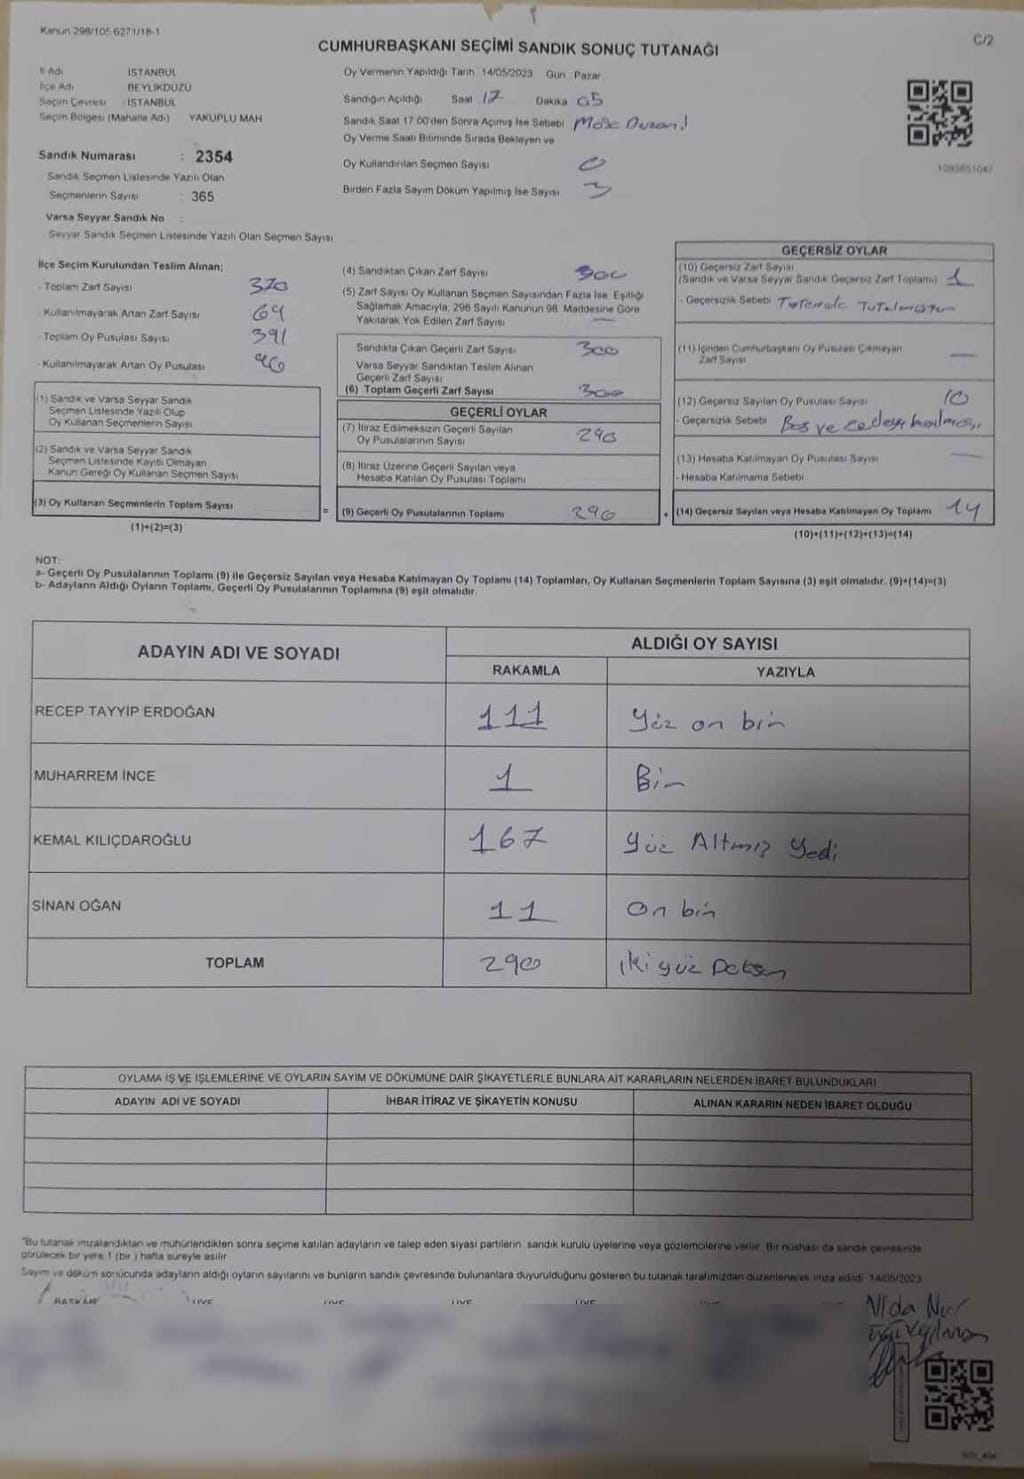 Kanun 298/105 6271/18-1
C/2
CUMHURBAŞKANI SEÇİMİ SANDIK SONUÇ TUTANAĞI
İl Adı İSTANBUL
İlçe Adı BEYLİKDÜZÜ
Seçim Çevresi : İSTANBUL
Seçim Bölgesi (Mahalle Adı) YAKUPLU MAH
Sandık Numarası : 2354
Sandık Seçmen Listesinde Yazılı Olan
Seçmenlerin Sayısı : 365
Varsa Seyyar Sandık No :
Seyyar Sandık Seçmen Listesinde Yazılı Olan Seçmen Sayısı
Oy Vermenin Yapıldığı Tarih 14/05/2023 Gün Pazar
Sandığın Açıldığı Saat 17 Dakika 05
Sandık Saat 17.00'den Sonra Açılmış İse Sebebi
Oy Verme Saati Bitiminde Sırada Bekleyen ve
Oy Kullandırılan Seçmen Sayısı 0
Birden Fazla Sayım Döküm Yapılmış İse Sayısı 3
1093851047
İlçe Seçim Kurulundan Teslim Alınan;
- Toplam Zarf Sayısı 370
- Kullanılmayarak Artan Zarf Sayısı 69
- Toplam Oy Pusulası Sayısı 391
- Kullanılmayarak Artan Oy Pusulası 90
(1) Sandık ve Varsa Seyyar Sandık
Seçmen Listesinde Yazılı Olup
Oy Kullanan Seçmenlerin Sayısı
(2) Sandık ve Varsa Seyyar Sandık
Seçmen Listesinde Kayıtlı Olmayan
Kanun Gereği Oy Kullanan Seçmen Sayısı
(3) Oy Kullanan Seçmenlerin Toplam Sayısı
(1)+(2)=(3)
=
(4) Sandıktan Çıkan Zarf Sayısı 300
(5) Zarf Sayısı Oy Kullanan Seçmen Sayısından Fazla İse, Eşitliği
Sağlamak Amacıyla, 298 Sayılı Kanunun 98. Maddesine Göre
Yakılarak Yok Edilen Zarf Sayısı —
Sandıkta Çıkan Geçerli Zarf Sayısı 300
Varsa Seyyar Sandıktan Teslim Alınan
Geçerli Zarf Sayısı
(6) Toplam Geçerli Zarf Sayısı 300
GEÇERLİ OYLAR
(7) İtiraz Edilmeksizin Geçerli Sayılan
Oy Pusulalarının Sayısı 290
(8) İtiraz Üzerine Geçerli Sayılan veya
Hesaba Katılan Oy Pusulası Toplamı
(9) Geçerli Oy Pusulalarının Toplamı 290
+
GEÇERSİZ OYLAR
(10) Geçersiz Zarf Sayısı
(Sandık ve Varsa Seyyar Sandık Geçersiz Zarf Toplamı) 1
- Geçersizlik Sebebi
(11) İçinden Cumhurbaşkanı Oy Pusulası Çıkmayan
Zarf Sayısı —
(12) Geçersiz Sayılan Oy Pusulası Sayısı 10
- Geçersizlik Sebebi Boş ve
(13) Hesaba Katılmayan Oy Pusulası Sayısı —
- Hesaba Katılmama Sebebi
(14) Geçersiz Sayılan veya Hesaba Katılmayan Oy Toplamı 14
(10)+(11)+(12)+(13)=(14)
NOT:
a- Geçerli Oy Pusulalarının Toplamı (9) ile Geçersiz Sayılan veya Hesaba Katılmayan Oy Toplamı (14) Toplamları, Oy Kullanan Seçmenlerin Toplam Sayısına (3) eşit olmalıdır. (9)+(14)=(3)
b- Adayların Aldığı Oyların Toplamı, Geçerli Oy Pusulalarının Toplamına (9) eşit olmalıdır.
ADAYIN ADI VE SOYADI ALDIĞI OY SAYISI
RAKAMLA YAZIYLA
RECEP TAYYİP ERDOĞAN 111 Yüz on bir
MUHARREM İNCE 1 Bir
KEMAL KILIÇDAROĞLU 167 Yüz Altmış Yedi
SİNAN OĞAN 11 On bir
TOPLAM 290 iki yüz Doksan
OYLAMA İŞ VE İŞLEMLERİNE VE OYLARIN SAYIM VE DÖKÜMÜNE DAİR ŞİKAYETLERLE BUNLARA AİT KARARLARIN NELERDEN İBARET BULUNDUKLARI
ADAYIN ADI VE SOYADI İHBAR İTİRAZ VE ŞİKAYETİN KONUSU ALINAN KARARIN NEDEN İBARET OLDUĞU
"Bu tutanak imzalandıktan ve mühürlendikten sonra seçime katılan adayların ve talep eden siyasi partilerin sandık kurulu üyelerine veya gözlemcilerine verilir. Bir nüshası da sandık çevresinde
görülecek bir yere 1 (bir ) hafta süreyle asılır
Sayım ve döküm sonucunda adayların aldığı oyların sayılarını ve bunların sandık çevresinde bulunanlara duyurulduğunu gösteren bu tutanak tarafımızdan düzenlenerek imza edildi 14/05/2023
BAŞKAN ÜYE ÜYE ÜYE ÜYE
Nida Nur